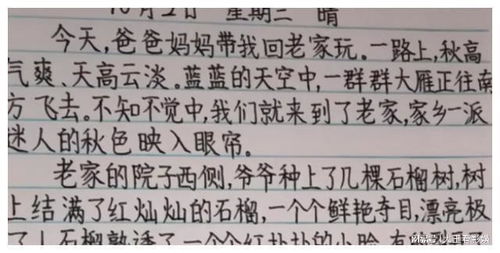 10月2日 星期三 晴
今天,爸爸妈妈带我回老家玩。一路上,秋高
气爽、天高云淡。蓝蓝的天空中,一群群大雁正往南
方飞去。不知不觉中,我们就来到了老家,家乡一派
迷人的秋色映入眼帘。
老家的院子西侧,爷爷种上了几棵石榴树,树
上结满了红灿灿的石榴,一个个鲜艳夺目,漂亮极
了!石榴熟透了,一个个红扑扑的小脸